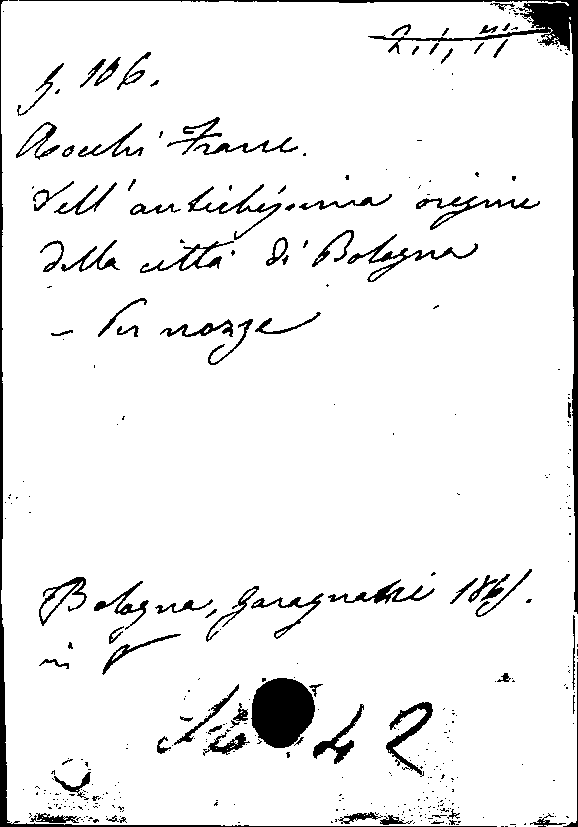 2, 1, 77
3. 106.
Rocchi Franc.
Dell'antichissima origine
della città di Bologna
– Per nozze
Bologna, Garagnani 186
in
42